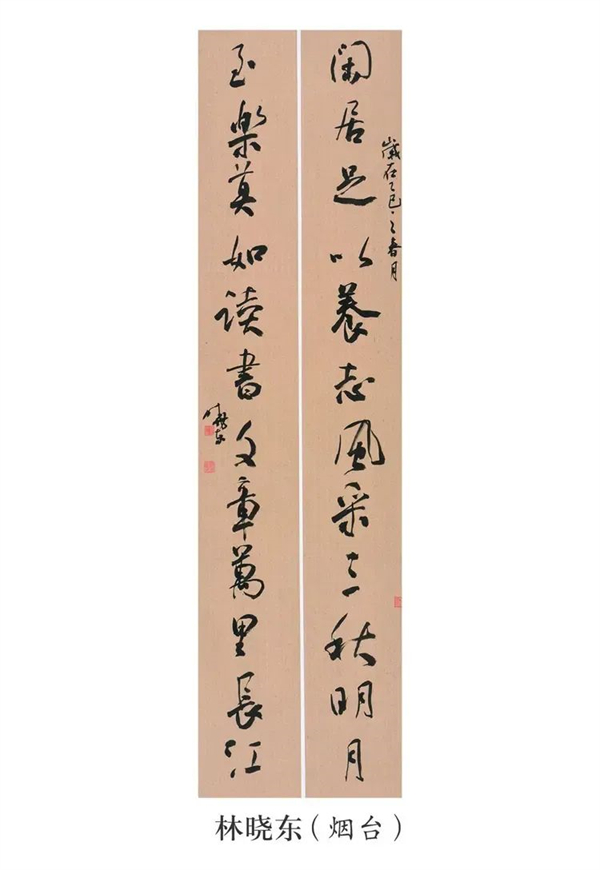 閑居足以養志風采三秋明月
歲在乙巳之春月
至樂莫如读書文章萬里長江
林晓东（烟台）